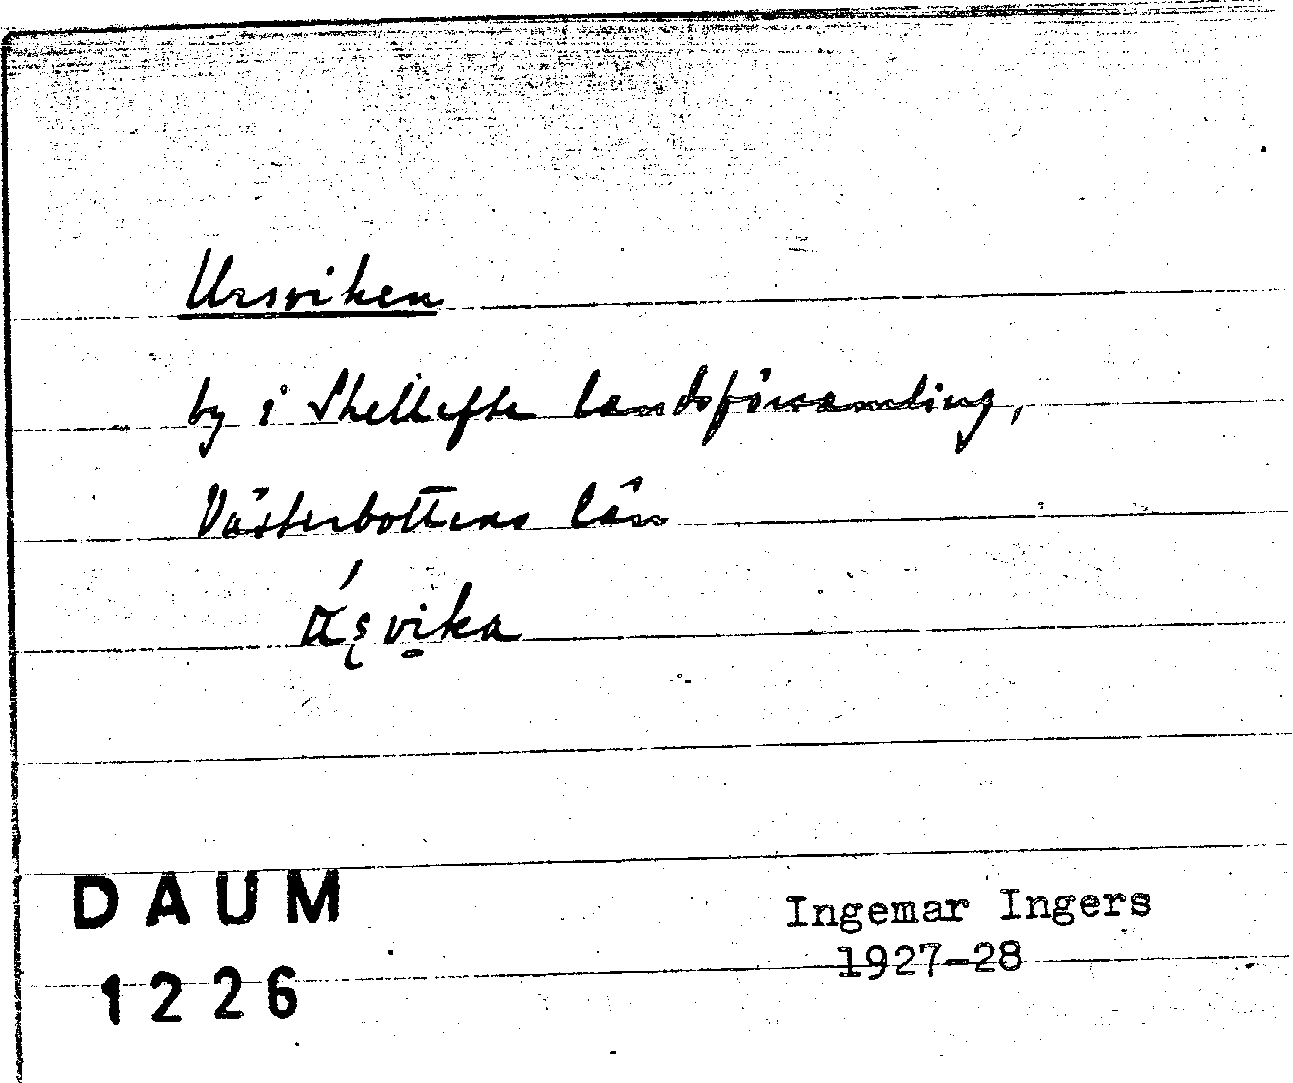 Ursviken
by i Skellefte landsförsamling,
Västerbottens län
DAUM
1226
Ingemar Ingers
1927-28